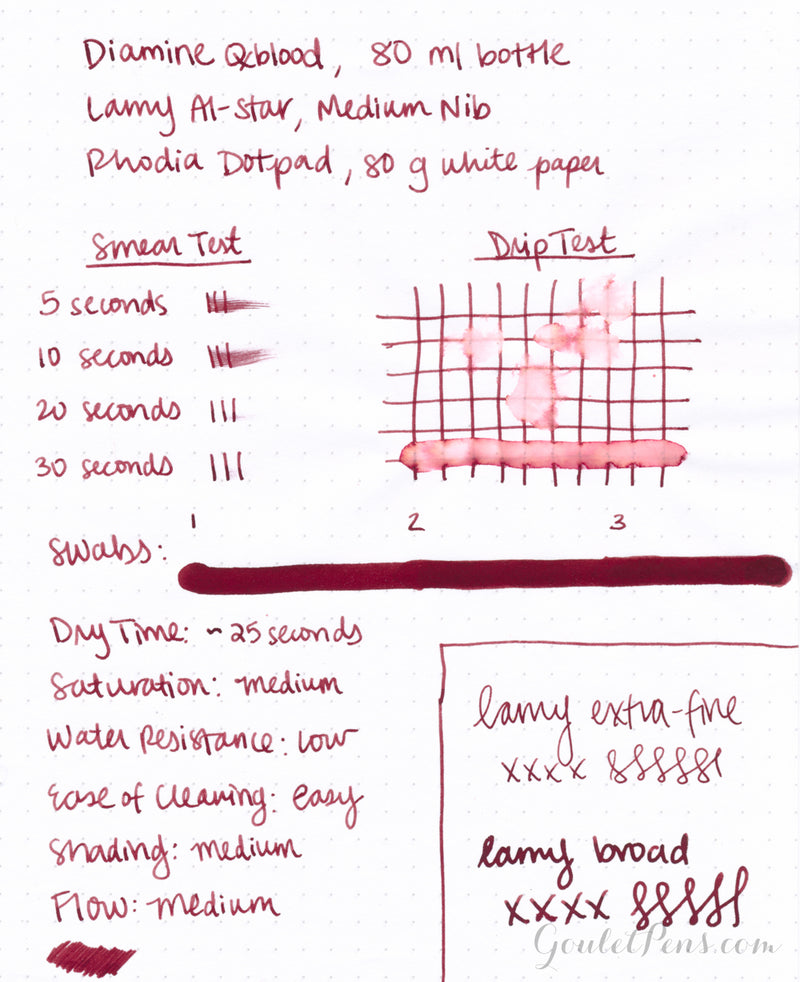 Diamine Oxblood, 80 ml bottle
Lamy Al-Star, Medium Nib
Rhodia Dotpad, 80 g white paper
Smear Test
5 seconds
10 seconds
20 seconds
30 seconds
Drip Test
Swabs: 1 2 3
Dry Time: ~25 seconds
Saturation: medium
Water Resistance: low
Ease of Cleaning: easy
Shading: medium
Flow: medium
lamy extra-fine
xxxx
lamy broad
xxxx
GouletPens.com